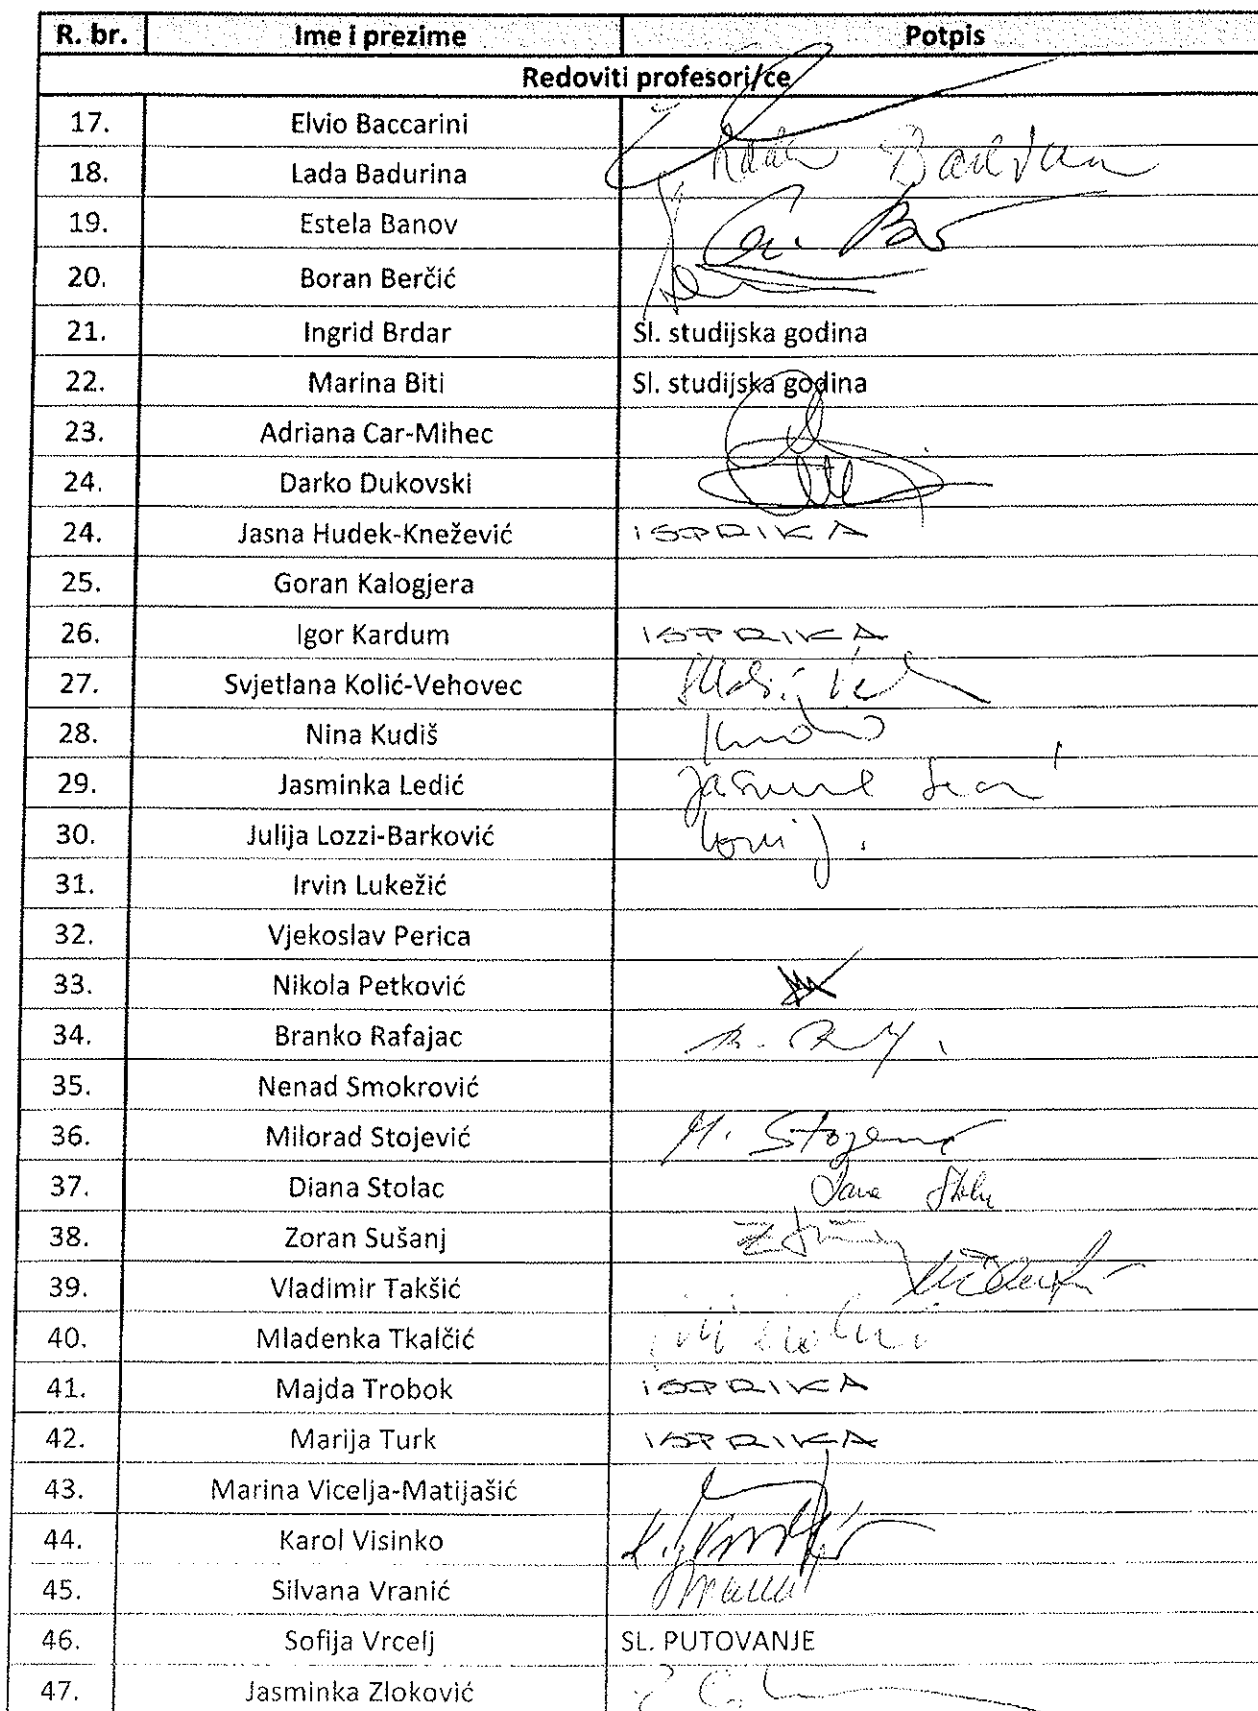 R. br. Ime i prezime Potpis
Redoviti profesori/ce
17. Elvio Baccarini
18. Lada Badurina
19. Estela Banov
20. Boran Berčić
21. Ingrid Brdar Sl. studijska godina
22. Marina Biti Sl. studijska godina
23. Adriana Car-Mihec
24. Darko Dukovski
24. Jasna Hudek-Knežević ISPRIKA
25. Goran Kalogjera
26. Igor Kardum ISPRIKA
27. Svjetlana Kolić-Vehovec
28. Nina Kudiš
29. Jasminka Ledić
30. Julija Lozzi-Barković
31. Irvin Lukežić
32. Vjekoslav Perica
33. Nikola Petković
34. Branko Rafajac
35. Nenad Smokrović
36. Milorad Stojević
37. Diana Stolac
38. Zoran Sušanj
39. Vladimir Takšić
40. Mladenka Tkalčić
41. Majda Trobok ISPRIKA
42. Marija Turk ISPRIKA
43. Marina Vicelja-Matijašić
44. Karol Visinko
45. Silvana Vranić
46. Sofija Vrcelj SL. PUTOVANJE
47. Jasminka Zloković